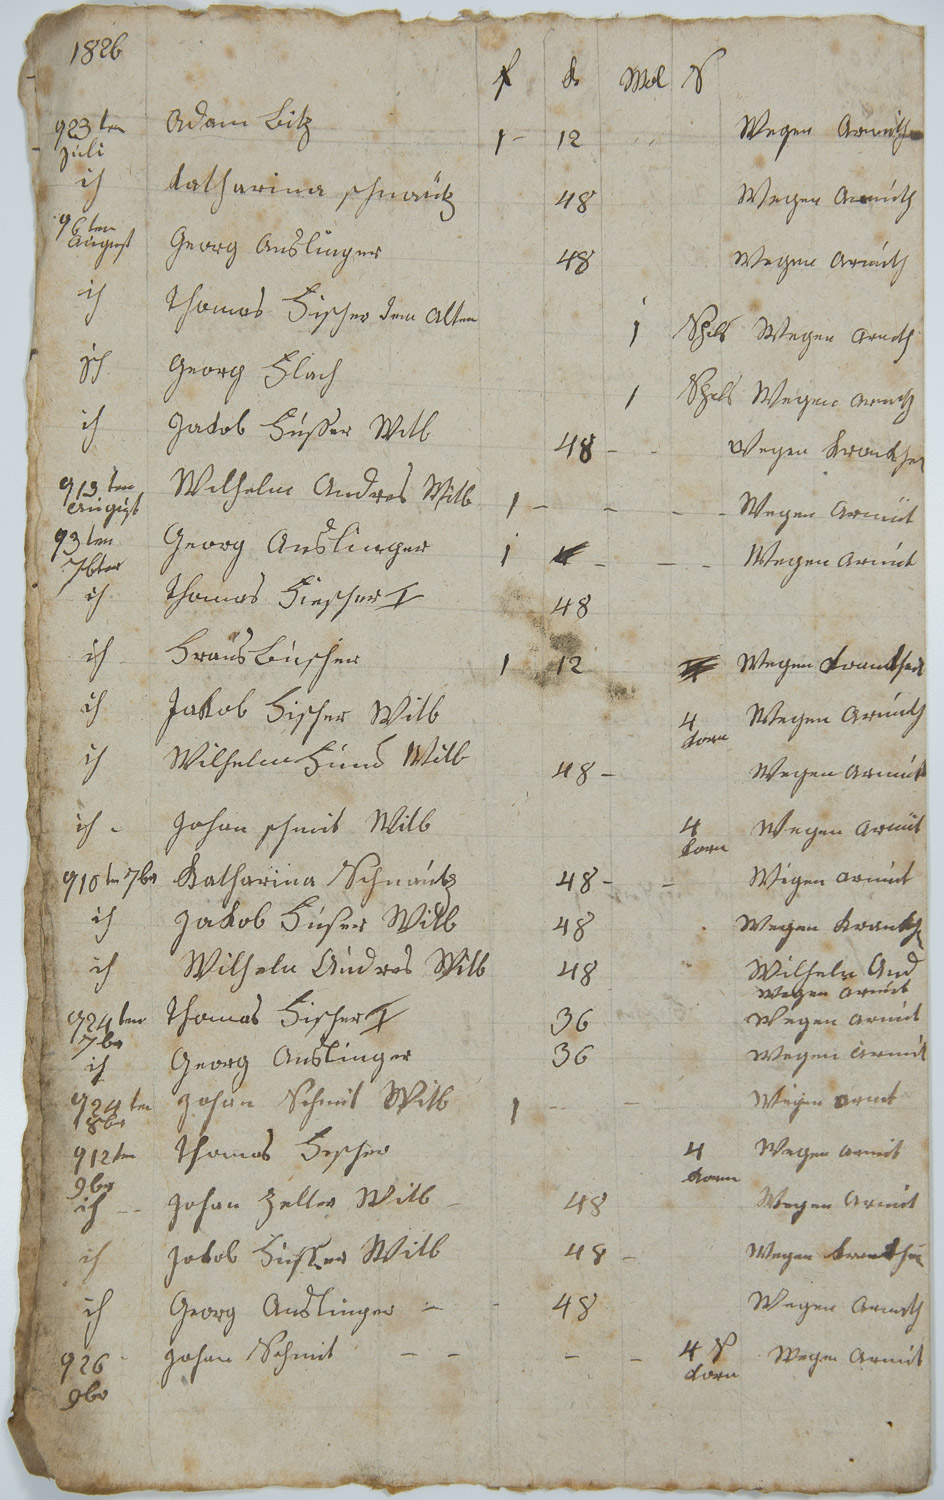 1826
f k Mol S
d 23 ten Juli Adam Bitz 1 - 12 Wegen Armuth
ich Katharina Schnautz 48 Wegen Armuth
d 6 ten August Georg Anslinger 48 Wegen Armuth
ich Thomas Fischer dem Alten 1 Spels Wegen Armuth
ich Georg Flach 1 Spels Wegen Armuth
ich Jakob Witb 48 - - Wegen
d 13 ten August Wilhelm Andres Witb 1 - - - - Wegen Armut
d 3 ten 7bter Georg Anslinger 1 - - - Wegen Armut
ich Thomas Fiescher I 48
ich 1 12 Wegen
ich Jakob Fischer Witb 4 Korn Wegen Armuth
ich Wilhelm Witb 48 - Wegen Armut
ich - Johan Schmit Witb 4 Korn Wegen Armut
d 10 ten 7br Katharina Schnautz 48 - - Wegen Armut
ich Jakob Witb 48 Wegen
ich Wilhelm Andres Witb 48 Wilhelm And
Wegen Armut
d 24 ten 7br Thomas Fischer I 36 Wegen Armut
ich Georg Anslinger 36 Wegen Armut
d 24 ten 8br Johan Schmit Witb 1 - - Wegen Armut
d 12 ten 9br Thomas Fischer 4 Korn Wegen Armut
ich - - Johan Zeller Witb - 48 Wegen Armut
ich Jakob Witb 48 - Wegen
ich Georg Anslinger - - 48 Wegen Armuth
d 26 9br Johan Schmit - - - - 4 S Korn Wegen Armut